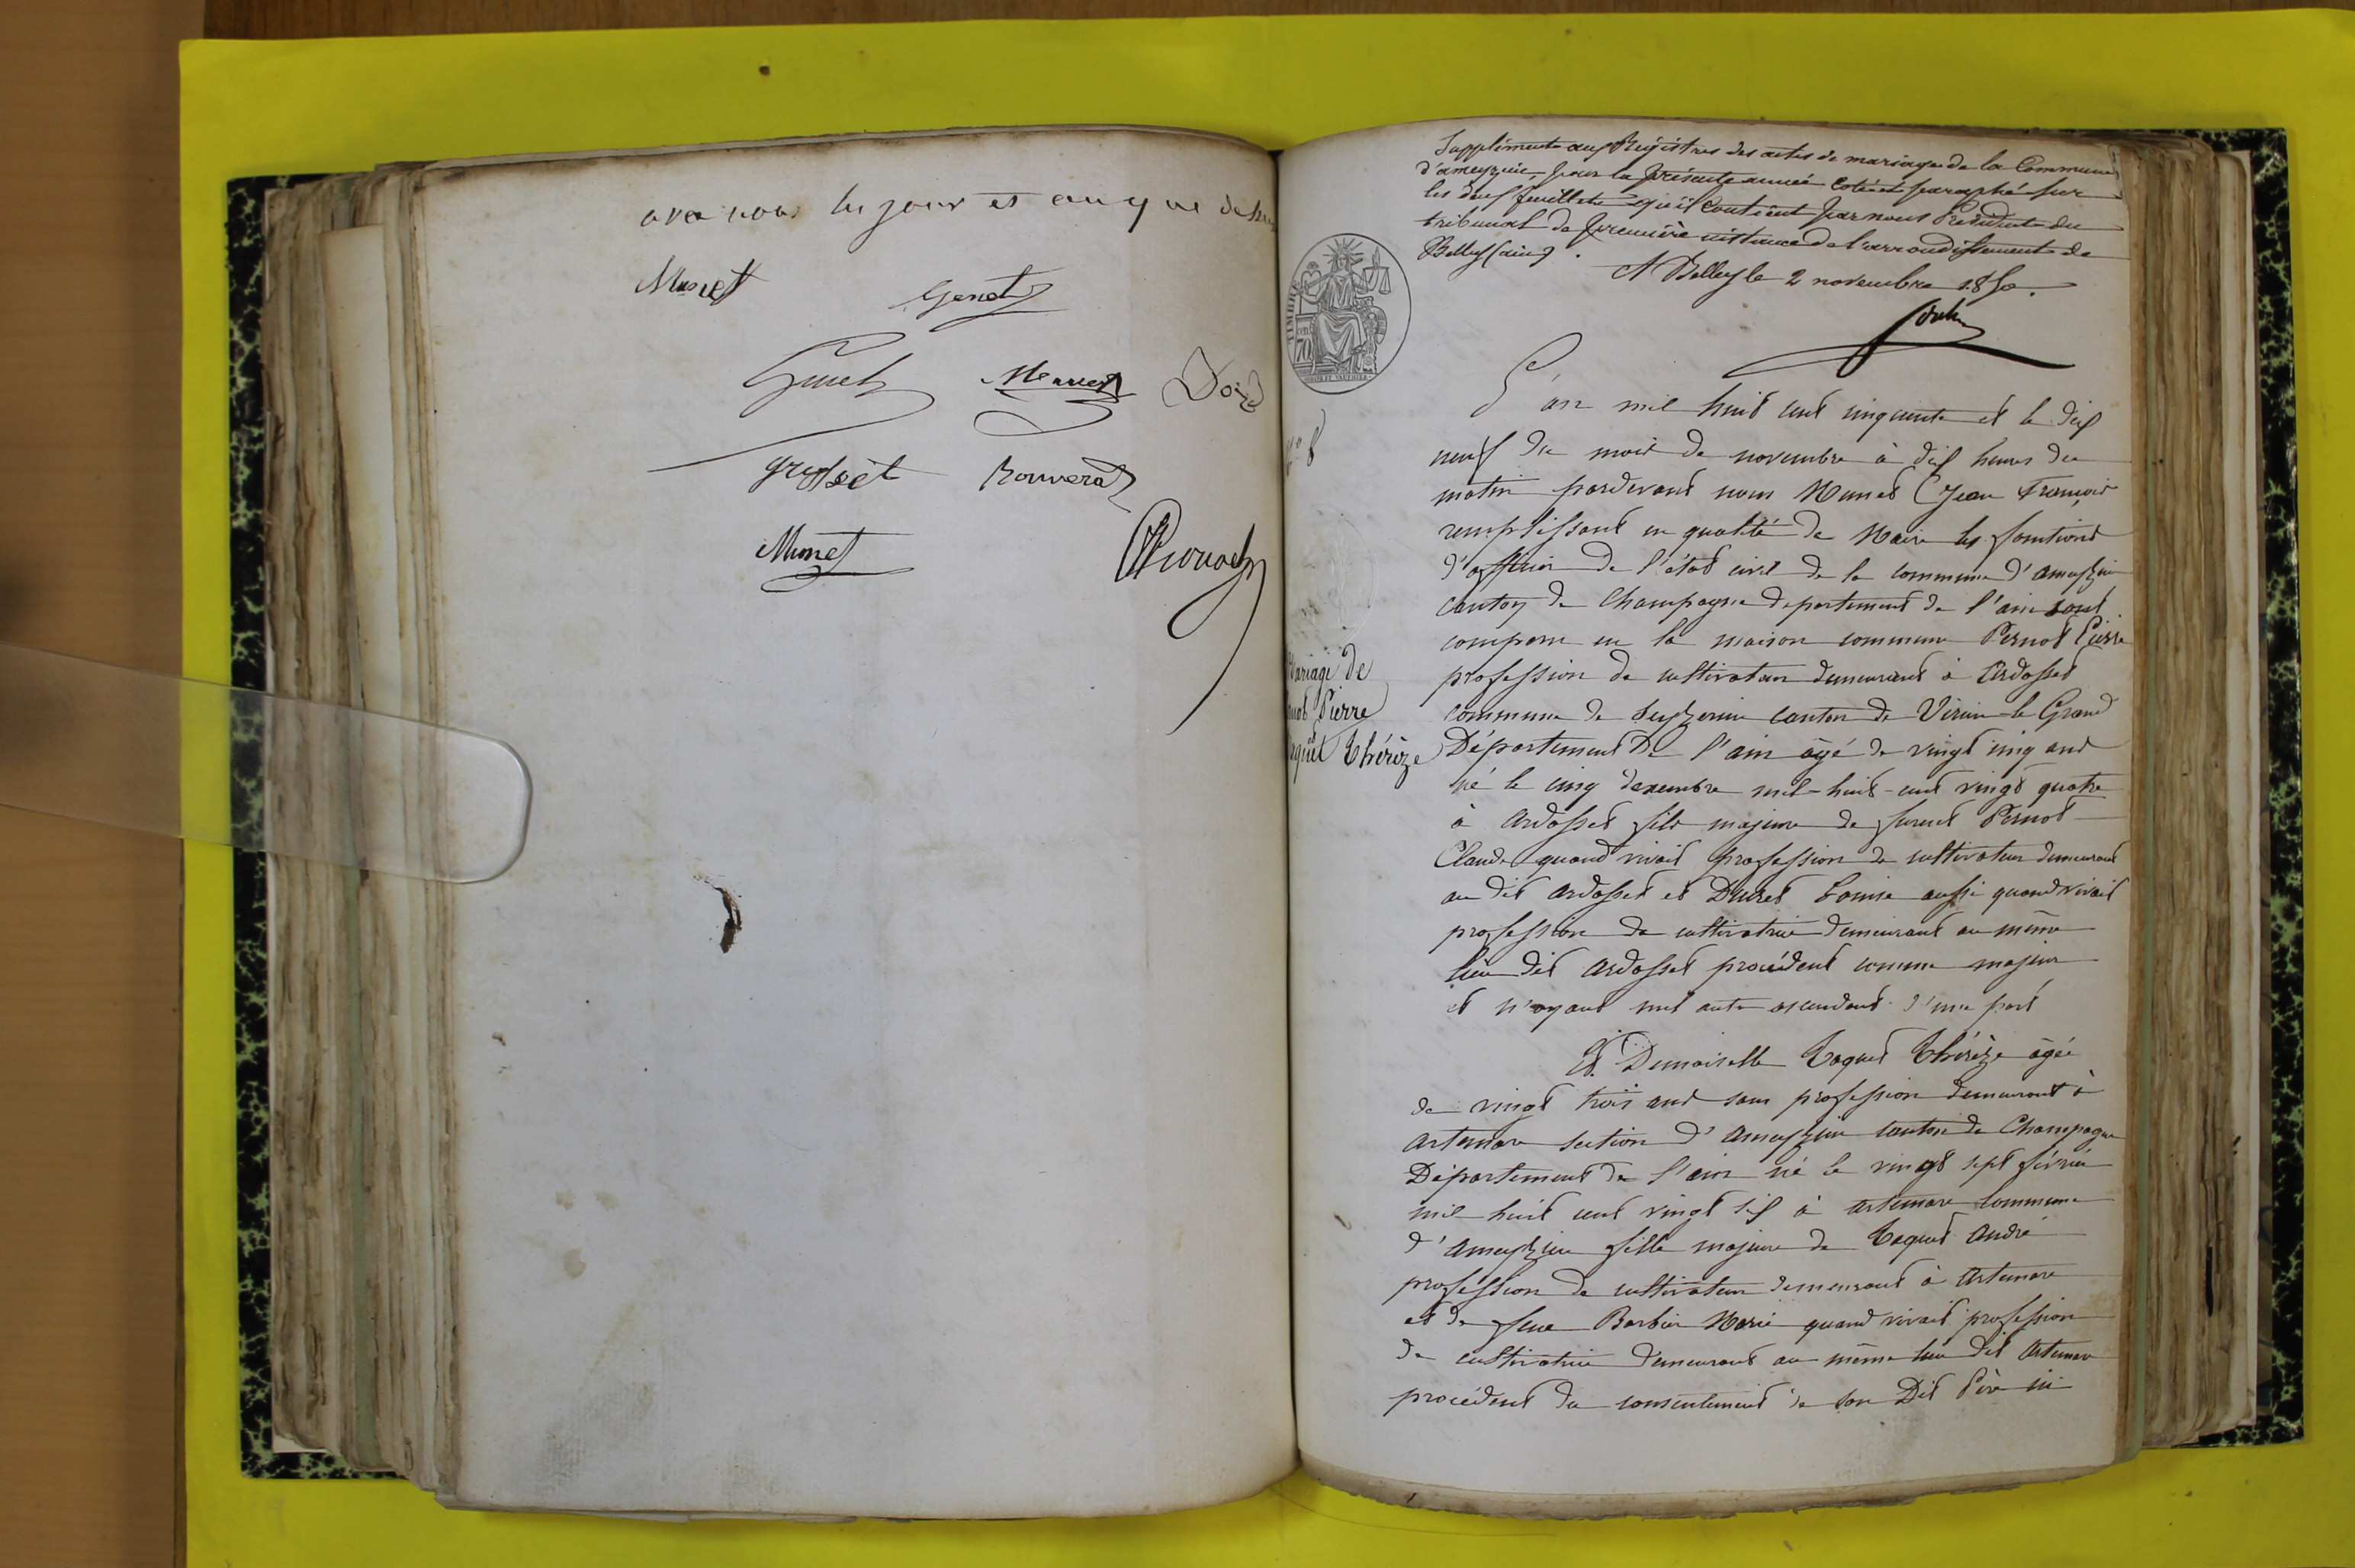 avec nous les jour et an que dessus
Munet
Genet
Munet
Grosset
Munet
Supplément aux Régistres des actes de mariage de la Commune
d'ameyzieu, pour la présente année Coté et paraphé sur
les deux feuillets qu'il contient par nous Président du
tribunal de première instance de l'arrondissement de
Belley (ain).
A Belley le 2 novembre 1850.
TIMBRE
70
L'an mil huit cent cinquante et le dix
neuf du mois de novembre à dix heures du
matin pardevant nous Munet Jean François
remplissant en qualité de Maire les fonctions
d'officier de l'état civil de la commune d'ameyzieu
canton de Champagne département de l'ain sont
comparu en la maison commune Pernod Pierre
profession de cultivateur demeurant à Ardosset
commune de Seyzerieu canton de Virieu-le Grand
Département de l'ain âgé de vingt cinq ans
né le cinq decembre mil-huit-cent vingt quatre
à Ardosset fils majeur de furent Pernod
Claude quand vivait profession de cultivateur demeurant
au dit Ardosset et Ducret Louise aussi quand vivait
profession de cultivatrice demeurant au même
lieu dit Ardosset procédent comme majeur
et n'ayant nul autre ascendant d'une part
Mariage de
Pernod Pierre
et
Taquet Thérèze
Et Demoiselle Taquet Thérèze âgée
de vingt trois ans sans profession demeurant à
Artemare section d'Ameyzieu canton de Champagne
Département de l'ain né le vingt sept février
mil huit cent vingt six à Artemare commune
d'Ameyzieu fille majeure de Taquet André
proféssion de cultivateur demeurant à Artemare
et de feue Barbier Marie quand vivait profession
de cultivatrice demeurant au même lieu dit Artemare
procédent du consentement de son Dit Père ici